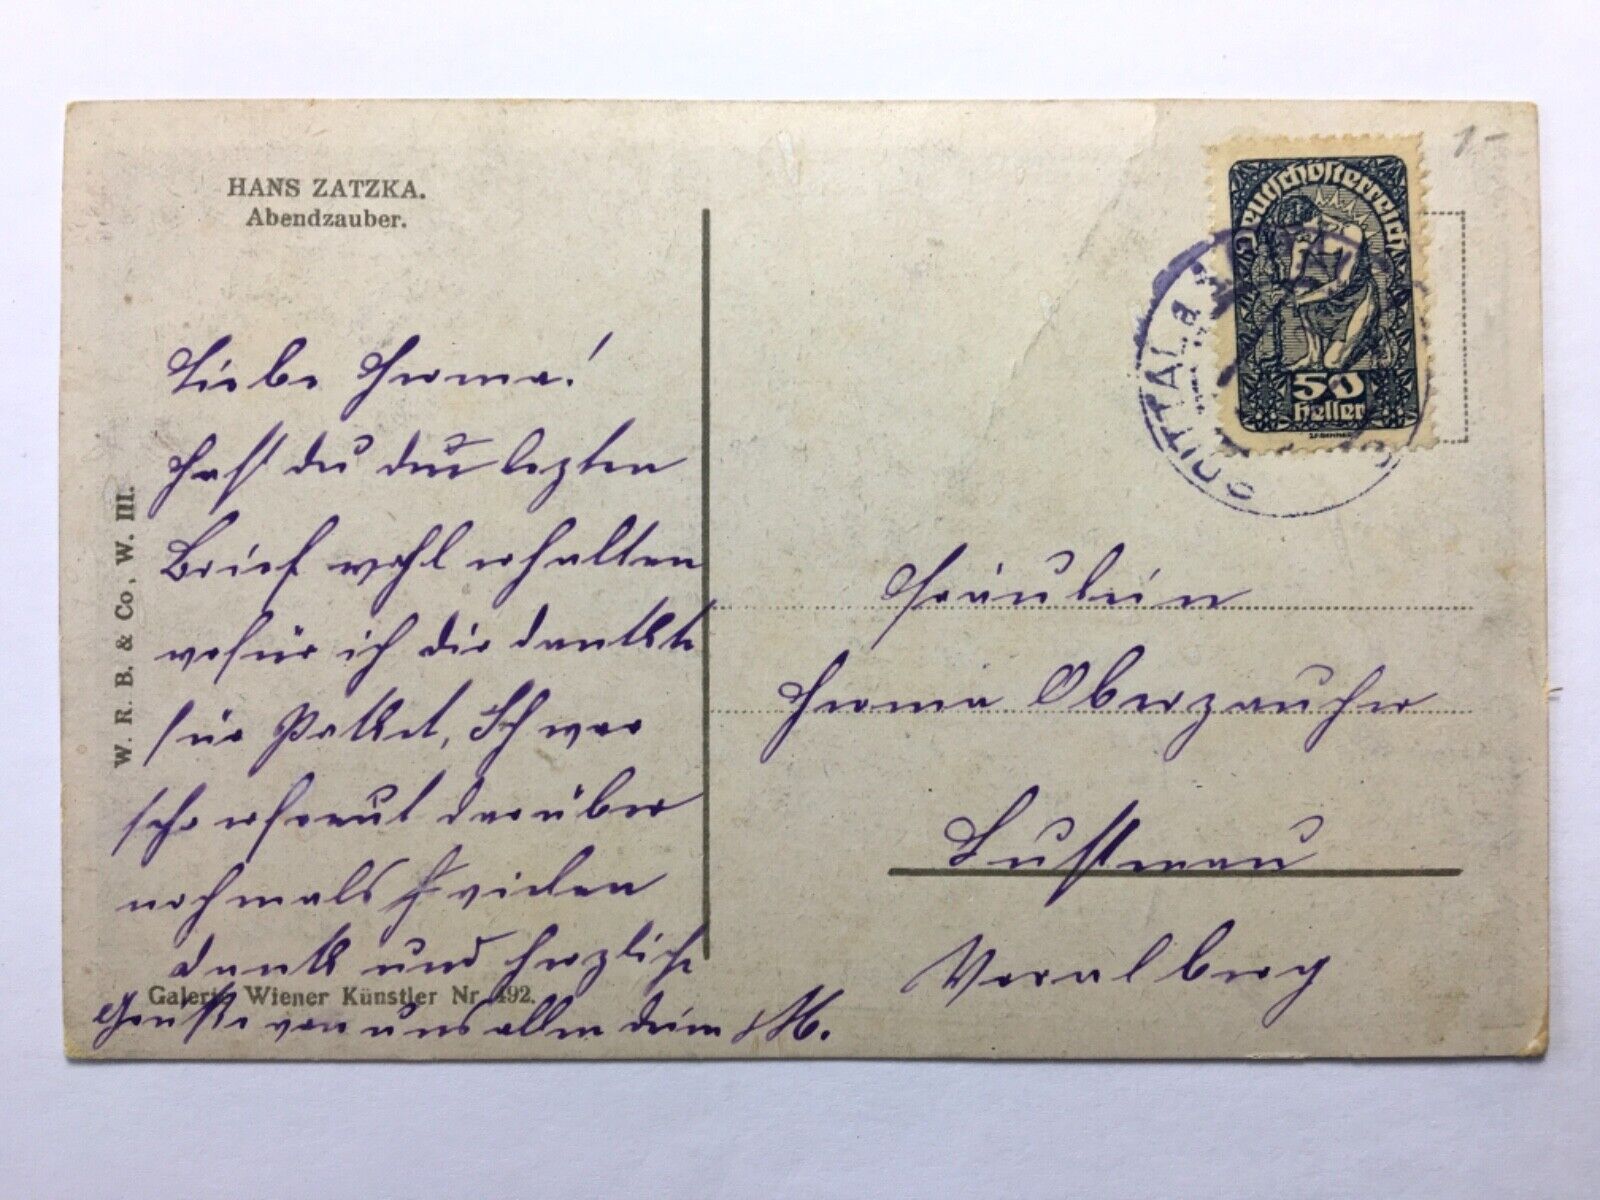 HANS ZATZKA.
Abendzauber.
W. R. B. & Co, W. III.
Liebe Herma!
Hast du den lezten
Brief wohl erhalten
wofür ich dir dankte
für Paket, Ich war
sehr erfreut darüber
nochmals vielen
Dank und herzliche
Galerie Wiener Künstler Nr. 492.
Grüße von uns allen deine M.
1-
Deutschösterreich
50
Heller
Fräulein
Herma Oberzaucher
Lustenau
Voralberg